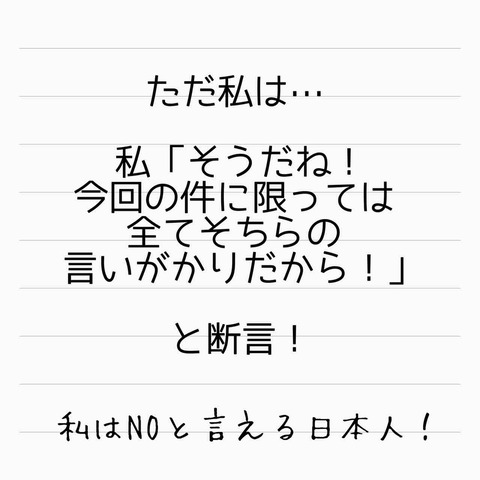 ただ私は…
私「そうだね！
今回の件に限っては
全てそちらの
言いがかりだから！」
と断言！
私はNOと言える日本人！